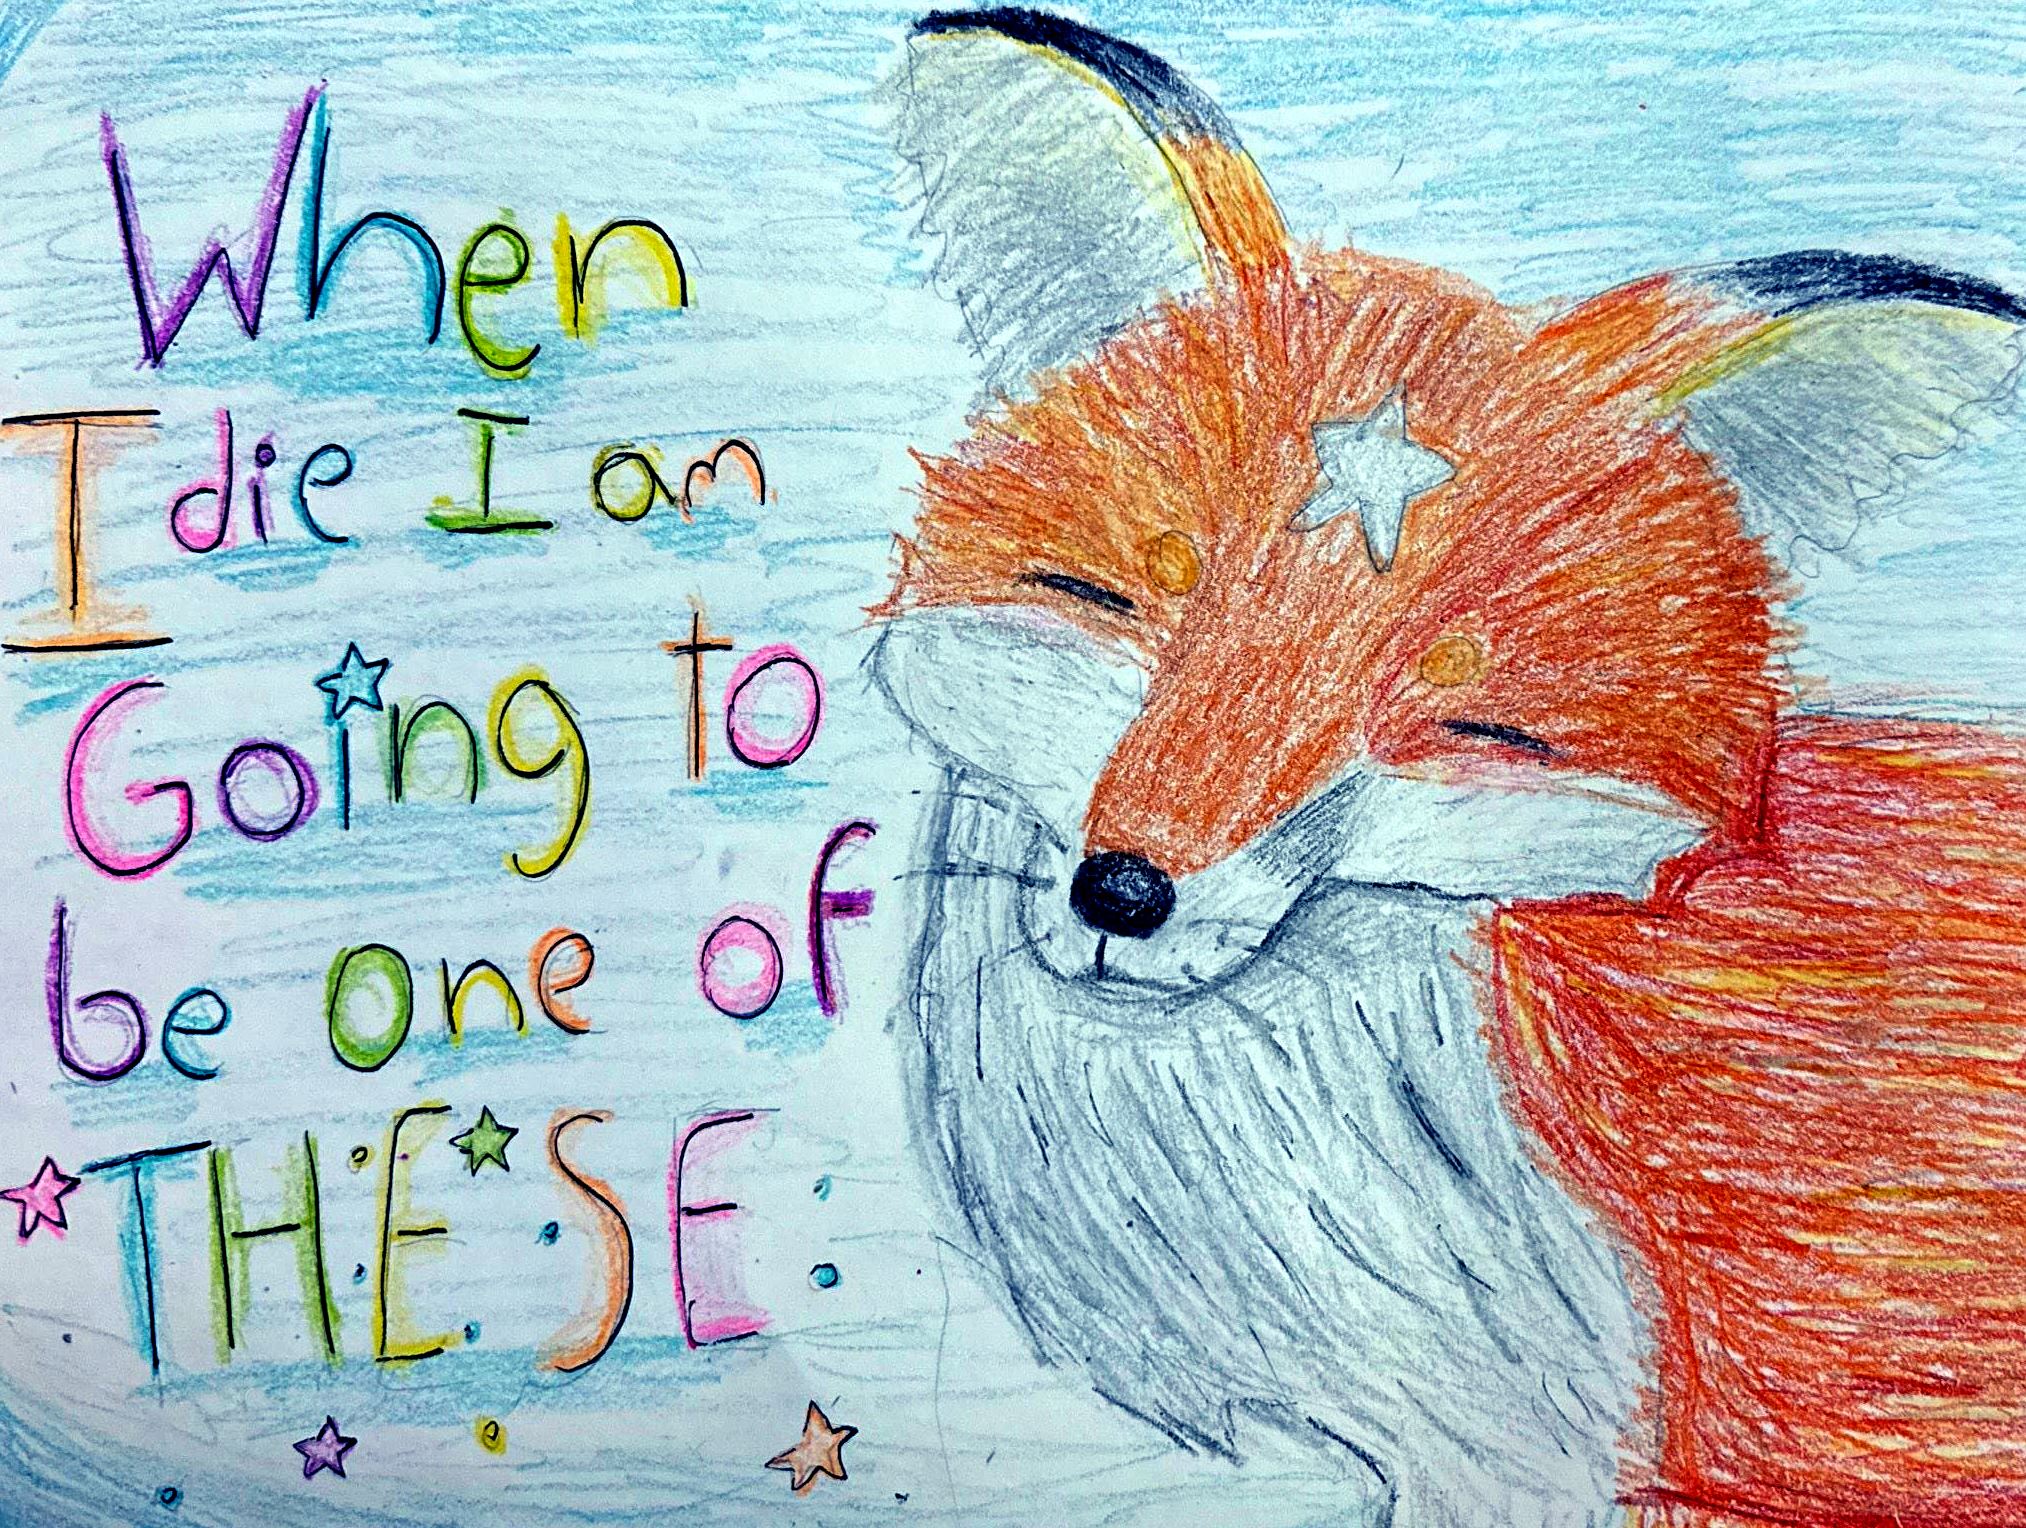 When
I die I am
Going to
be one of
THESE